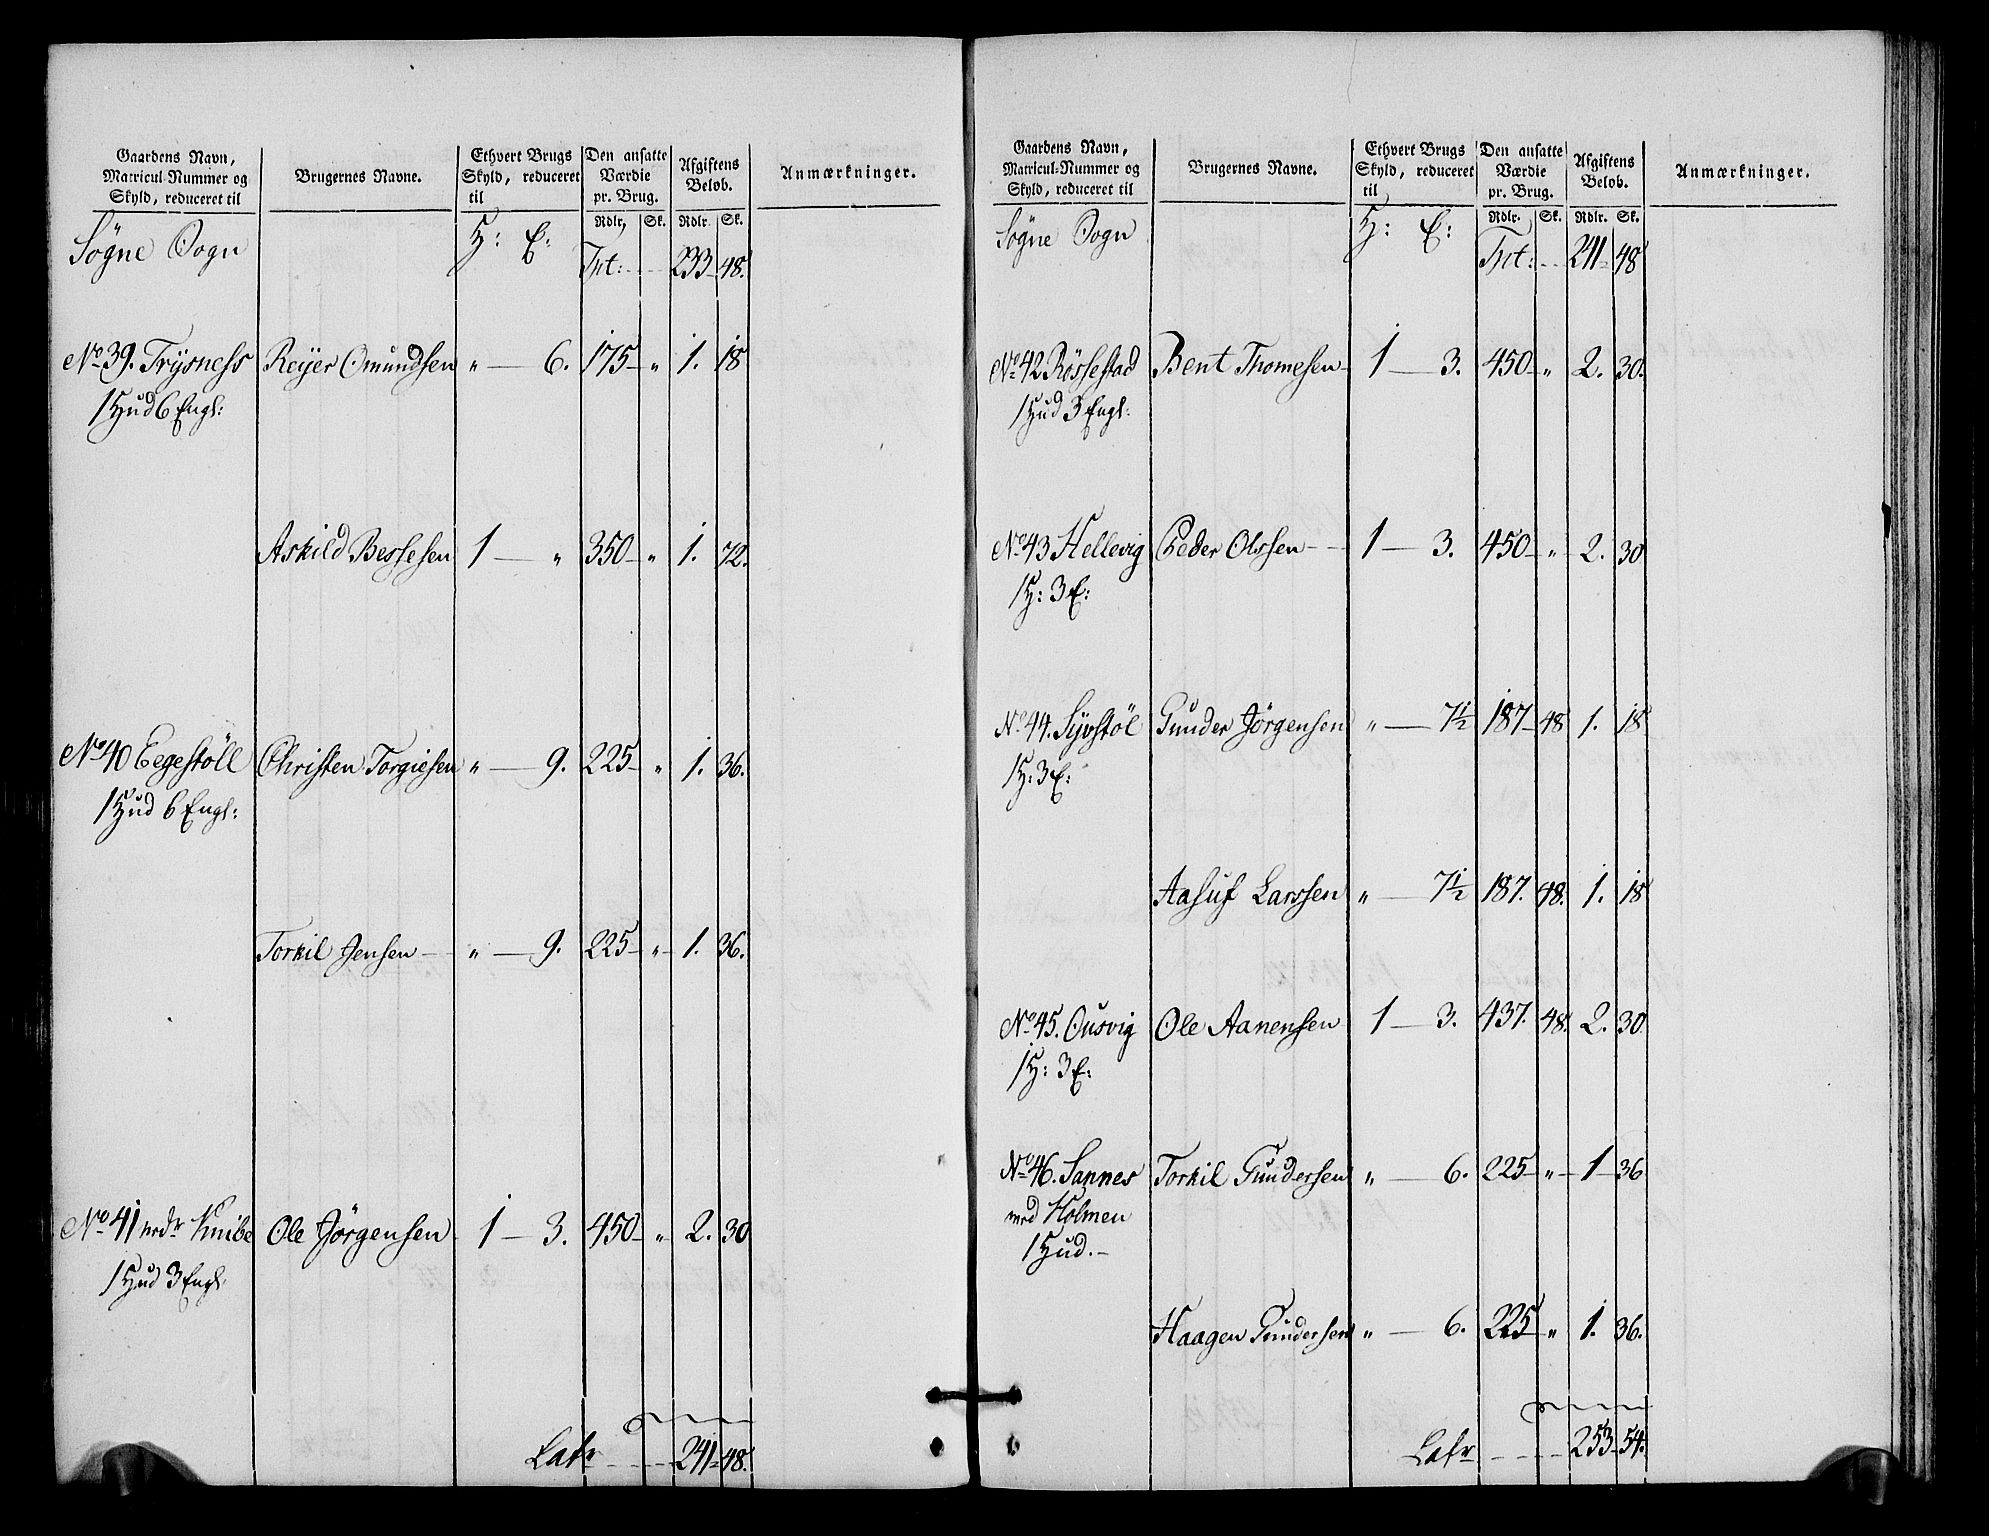 Gaardens Navn,
Matricul-Nummer og
Skyld, reduceret til
Brugernes Navne.
Ethvert Brugs
Skyld, reduceret
til
Den ansatte
Værdie
pr. Brug.
Afgiftens
Beløb.
Anmærkninger.
Rdlr. Sk. Rdlr. Sk.
Søgne Sogn H: E: Trt: 233 48.
No 39. Trysness Reyer Omundsen " — 6. 175 " 1. 18
1 Hud 6 Engl:
Askild Bessesen 1 — " 350 " 1. 72.
No 40 Eegestøll Christen Torgiesen " — 9. 225 " 1. 36.
1 Hud 6 Engl:
Torkil Jensen " — 9. 225 " 1. 36.
No 41 nedr Knibe Ole Jørgensen 1 — 3. 450 " 2. 30
1 Hud 3 Engl:
Latr 241 48.
Gaardens Navn,
Matricul-Nummer og
Skyld, reduceret til
Brugernes Navne.
Ethvert Brugs
Skyld, reduceret
til
Den ansatte
Værdie
pr. Brug.
Afgiftens
Beløb.
Anmærkninger.
Rdlr. Sk. Rdlr. Sk.
Søgne Sogn H: E: Trt: 241 48
No 42 Røssestad Bent Thomesen 1 — 3. 450 " 2. 30.
1 Hud 3 Engl:
No 43 Hellevig Peder Olssen 1 — 3. 450 " 2. 30
1 H: 3 E:
No 44. Syvstøl Gunder Jørgensen " — 7½ 187 48 1. 18
1 H: 3 E:
Aasuf Larssen " — 7½ 187. 48. 1. 18
No 45. Ousvig Ole Aanensen 1 — 3. 437. 48. 2. 30
1 H: 3 E:
No 46. Sannes Torkil Gundersen " — 6. 225 " 1 36
med Holmen
1 Hud.
Haagen Gundersen " — 6. 225 " 1. 36.
Latr 253 54.